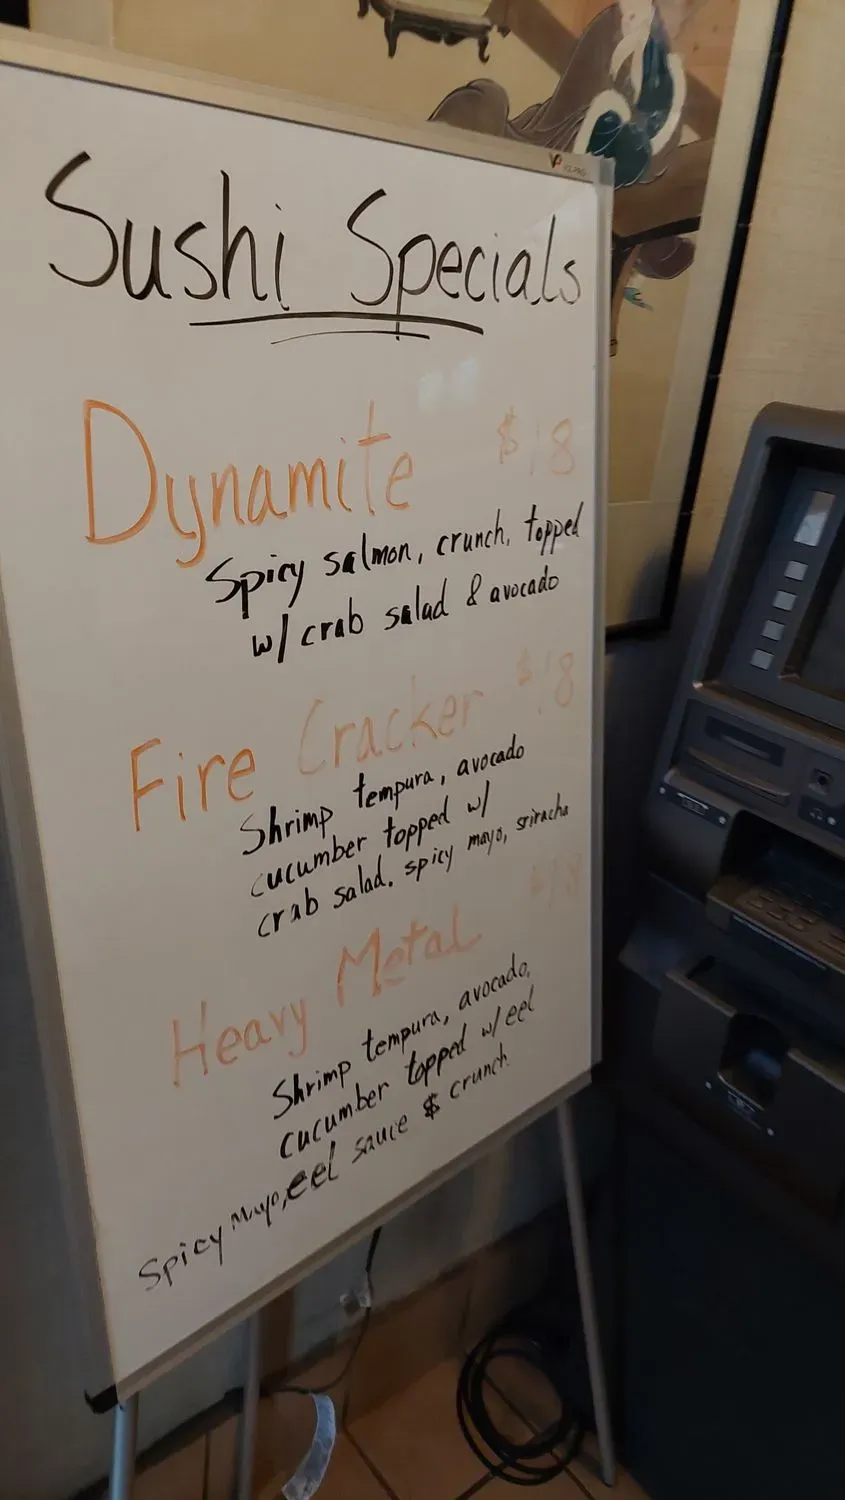 Sushi Specials
Dynamite $18
Spicy salmon, crunch, topped
w/ crab salad & avocado
Fire Cracker $18
Shrimp tempura, avocado
cucumber topped w/
crab salad. spicy mayo, sriracha
Heavy Metal $18
Shrimp tempura, avocado,
cucumber topped w/ eel
Spicy Mayo, eel sauce $ crunch